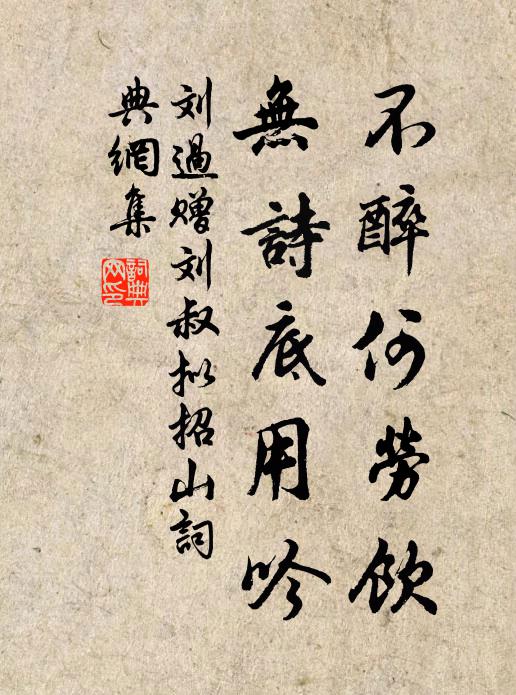 不醉何勞飲
無詩底用吟
刘過赠刘叔拟招山詞
典網集
詞典網印